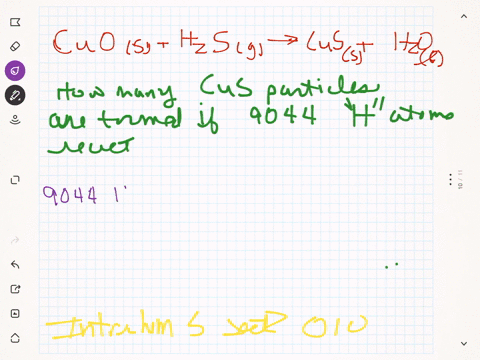 CuO (s) + H2S (g) → CuS (s) + H2O (l)
How many CuS particles
are formed if 9044 "H" atoms
react
9044 1'
5 010